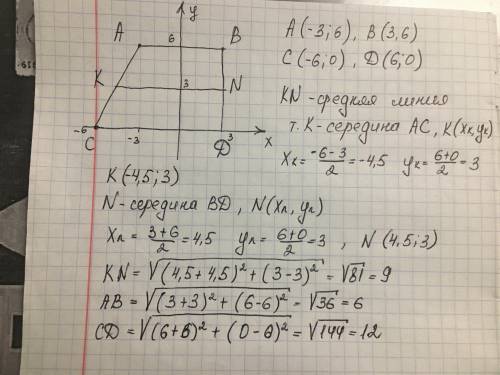 y
A 6 B
K 3 N
-6 -3 3 x
C D
A(-3;6), B(3,6)
C(-6;0), D(6;0)
KN-средняя линия
т. K-середина AC, K(xк,yк)
xк=(-6-3)/2=-4,5 yк=(6+0)/2=3
K(-4,5;3)
N-середина BD, N(xn,yn)
Xn=(3+6)/2=4,5 yn=(6+0)/2=3, N(4,5;3)
KN=√((4,5+4,5)²+(3-3)²)=√81=9
AB=√((3+3)²+(6-6)²)=√36=6
CD=√((6+6)²+(0-0)²)=√144=12